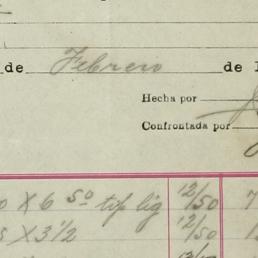 de Febrero de 1
Hecha por
Confrontada por
X 6 50 tip lig 12/50 7
X 3 1/2 12/50